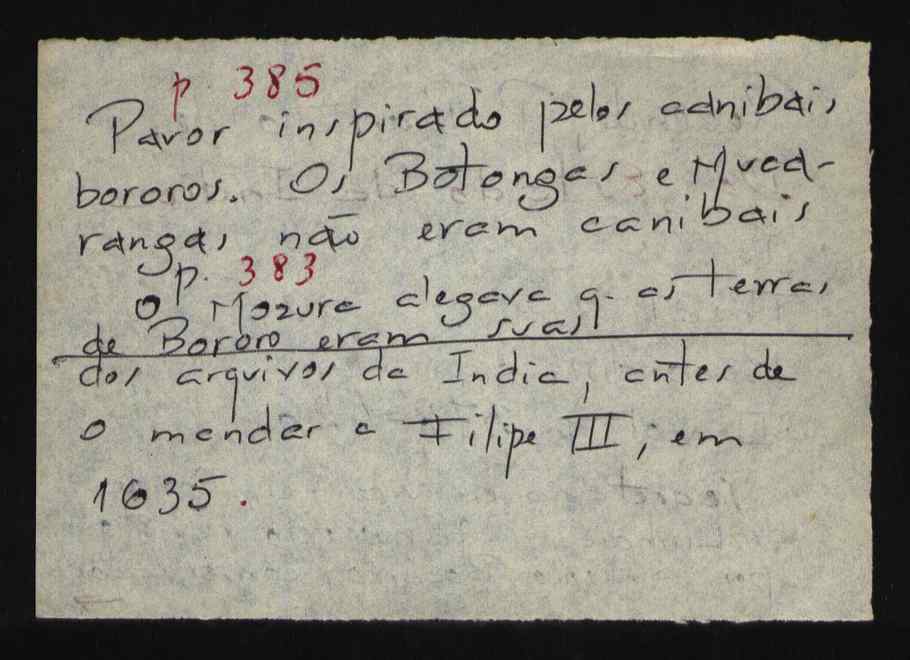 p. 385
Pavor inspirado pelos canibais
bororos. Os Botongas e Mvca-
rangas não eram canibais
p. 383
O Mozura alegava q. as terras
de Bororo eram suas
dos arquivos da India, antes de
o mandar a Filipe III, em
1635.